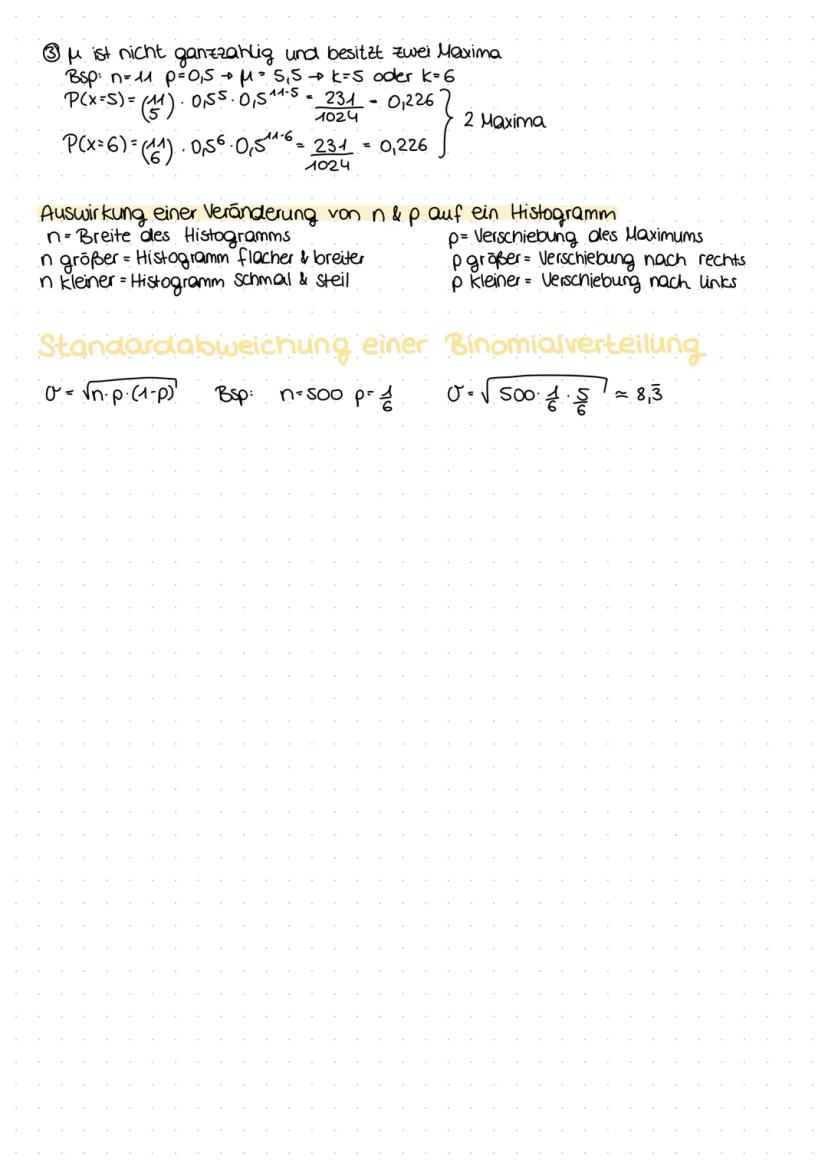 ③ μ ist nicht ganzzahlig und besitzt zwei Maxima
Bsp: n=11 p=0,5 → μ=5,5 → k=5 oder k=6
P(x=5)=(11/5)·0,5⁵·0,5¹¹⁻⁵=231/1024=0,226
P(x=6)=(11/6)·0,5⁶·0,5¹¹⁻⁶=231/1024=0,226
2 Maxima
Auswirkung einer Veränderung von n & p auf ein Histogramm
n=Breite des Histogramms
n größer=Histogramm flacher & breiter
n kleiner=Histogramm schmal & steil
p=Verschiebung des Maximums
p größer=Verschiebung nach rechts
p kleiner=Verschiebung nach links
Standardabweichung einer Binomialverteilung
σ=√n·p·(1-p) Bsp: n=500 p=1/6 σ=√500·1/6·5/6 ≈ 8,3̄